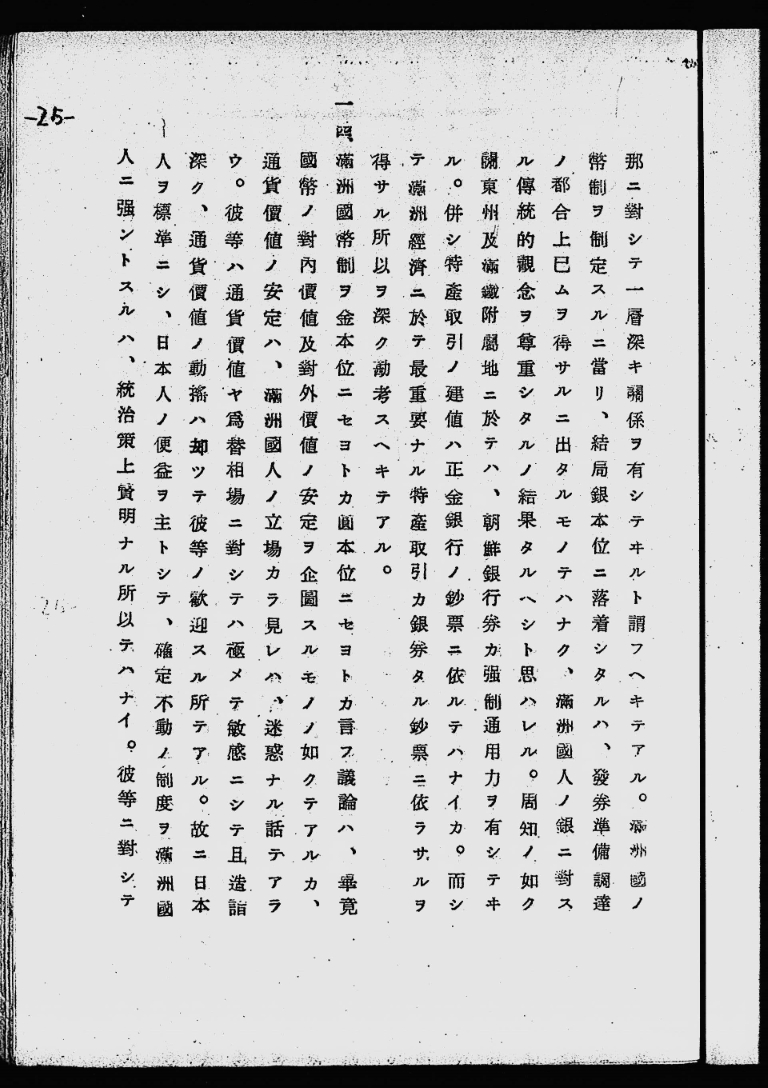 -25-
那ニ對シテ一層深キ關係ヲ有シテヰルト謂フヘキテアル。滿洲國ノ
幣制ヲ制定スルニ當リ、結局銀本位ニ落着シタルハ、發券準備調達
ノ都合上已ムヲ得サルニ出タルモノテハナク、滿洲國人ノ銀ニ對ス
ル傳統的觀念ヲ尊重シタルノ結果タルヘシト思ハレル。周知ノ如ク
關東州及滿鐵附屬地ニ於テハ、朝鮮銀行券カ强制通用力ヲ有シテヰ
ル。併シ特產取引ノ建値ハ正金銀行ノ鈔票ニ依ルテハナイカ。而シ
テ滿洲經濟ニ於テ最重要ナル特產取引カ銀券タル鈔票ニ依ラサルヲ
得サル所以ヲ深ク勘考スヘキテアル。
一四 滿洲國幣制ヲ金本位ニセヨトカ圓本位ニセヨトカ言フ議論ハ、畢竟
國幣ノ對內價値及對外價値ノ安定ヲ企圖スルモノノ如クテアルカ、
通貨價値ノ安定ハ、滿洲國人ノ立場カラ見レハ、迷惑ナル話テアラ
ウ。彼等ハ通貨價値ヤ爲替相場ニ對シテハ極メテ敏感ニシテ且造詣
深ク、通貨價値ノ動搖ハ却ツテ彼等ノ歡迎スル所テアル。故ニ日本
人ヲ標準ニシ、日本人ノ便益ヲ主トシテ、確定不動ノ制度ヲ滿洲國
人ニ强ントスルハ、統治策上賢明ナル所以テハナイ。彼等ニ對シテ